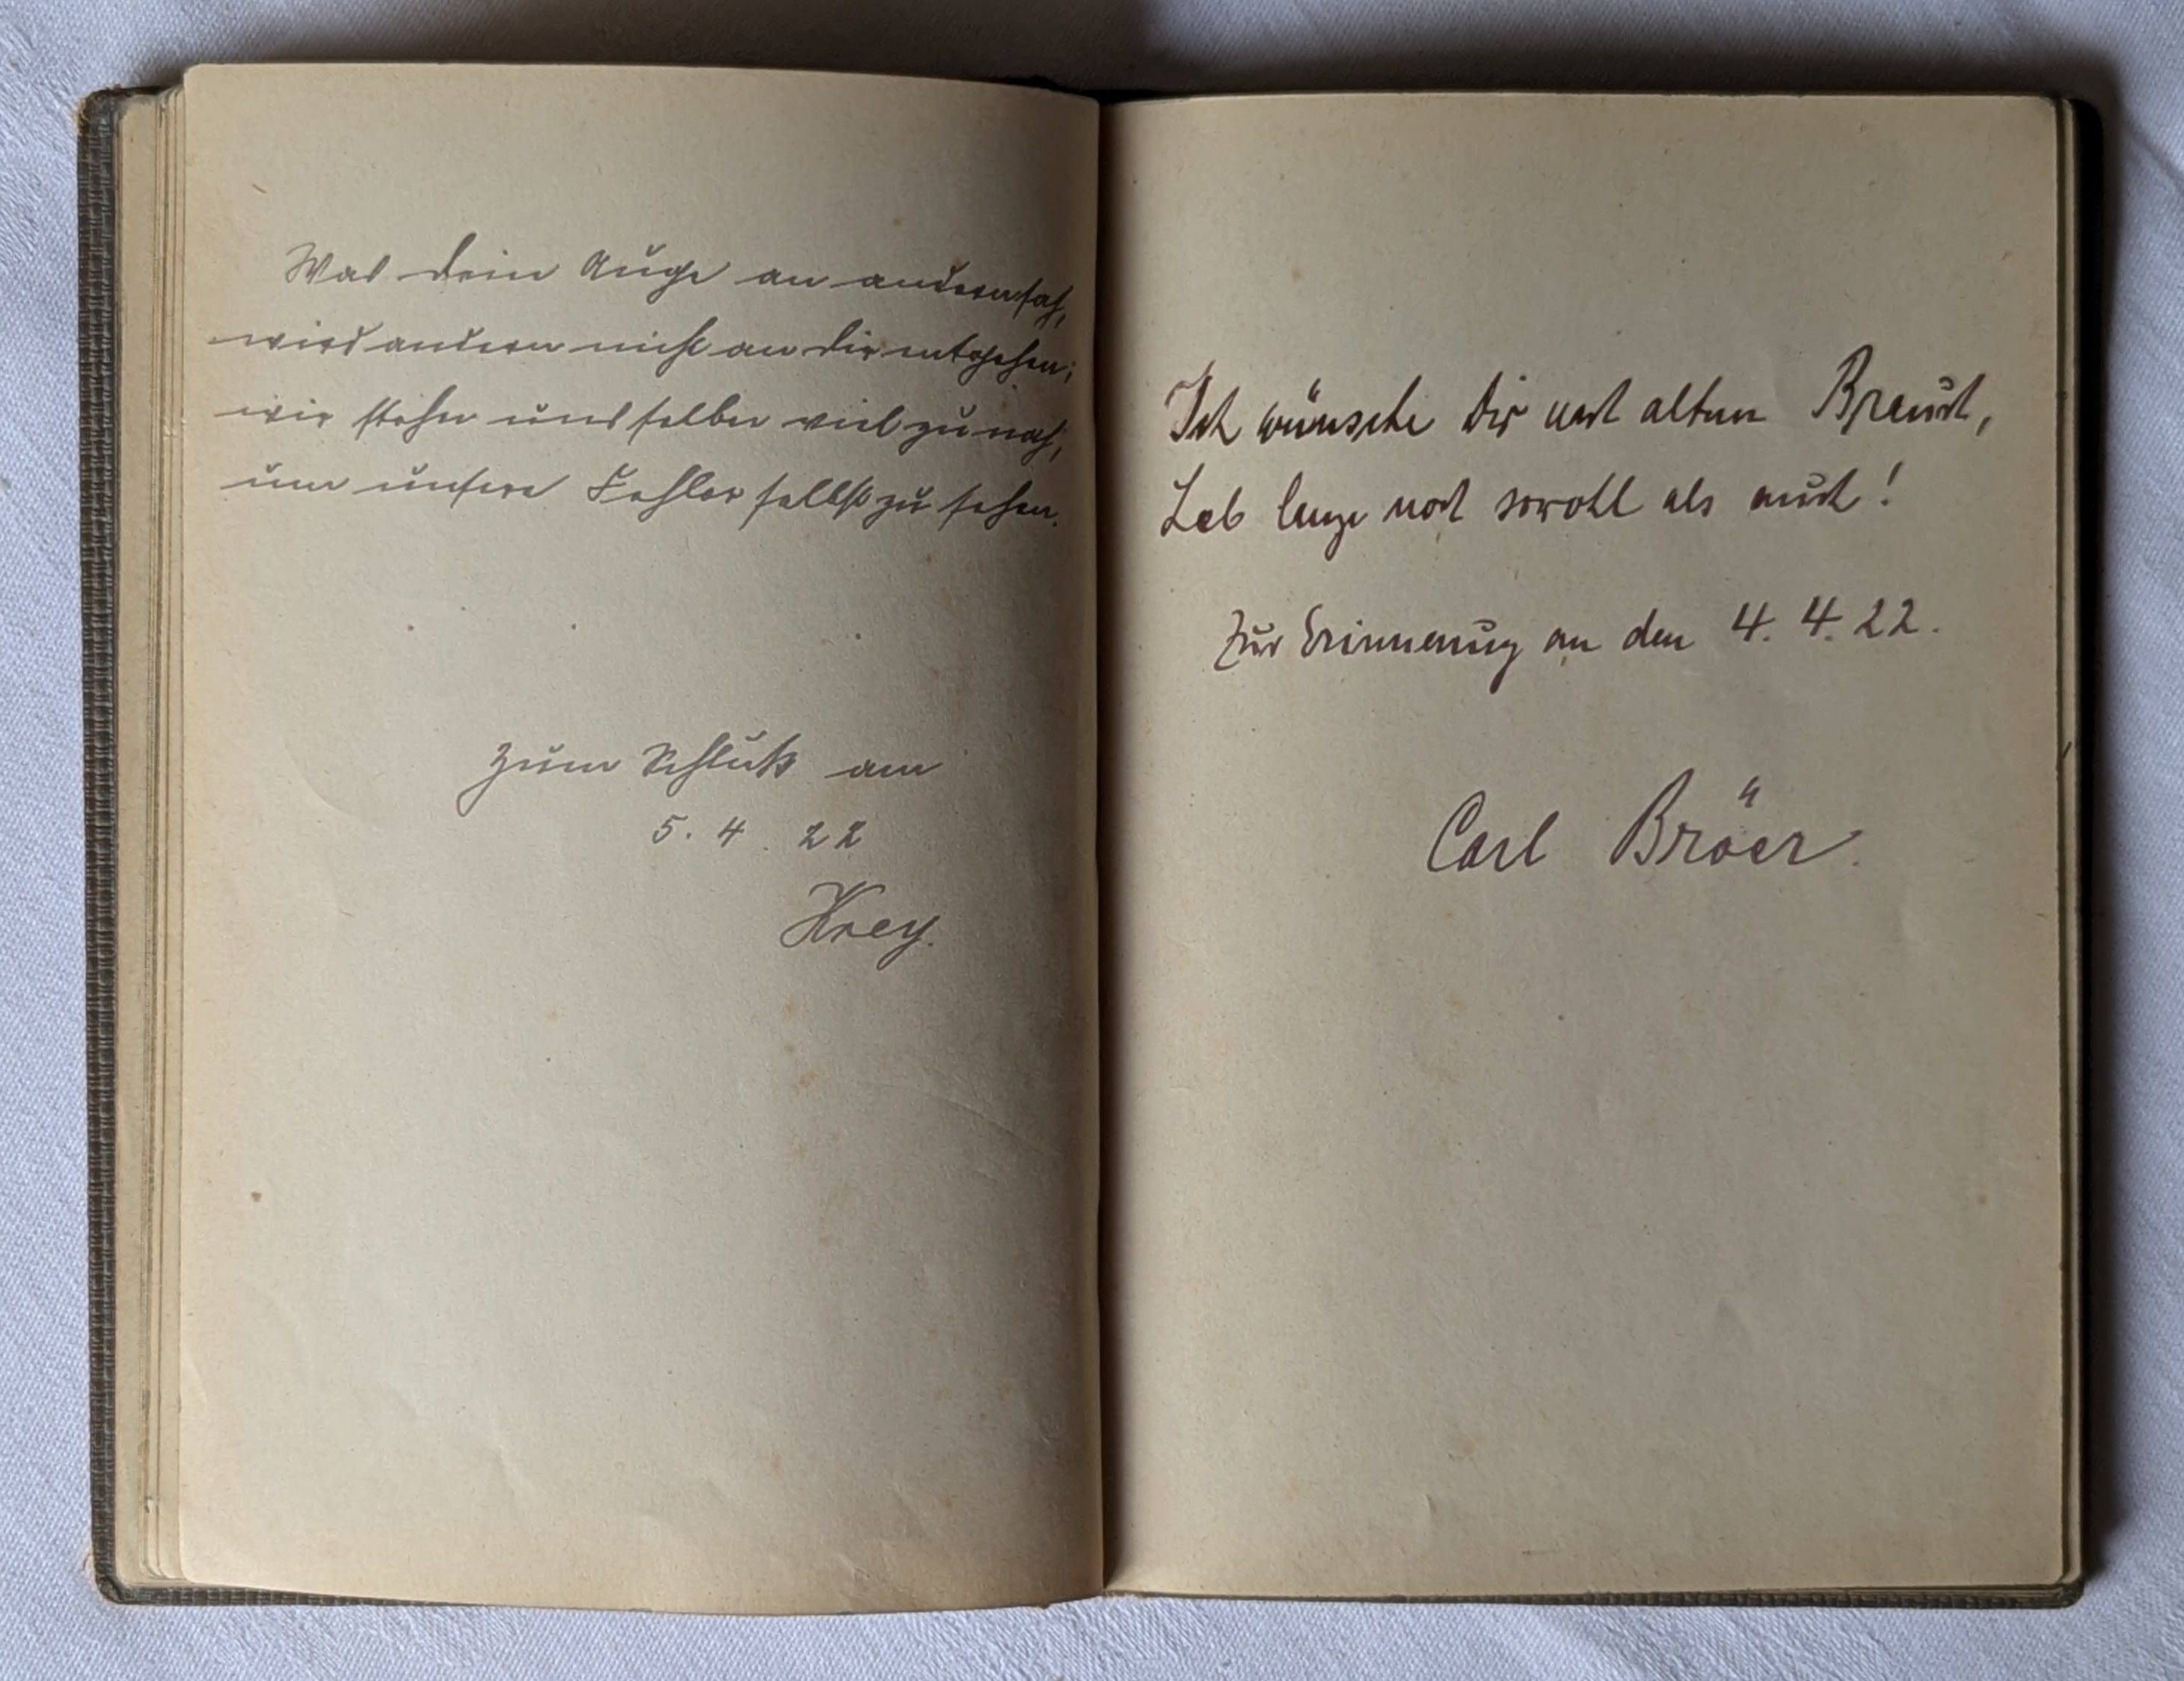 Was dein Auge an andern sah,
wird andern nicht an dir entgehen;
wir stehn uns selber viel zu nah,
um unsere Fehler selbst zu sehen.
Zum Schluß am
5. 4. 22
Krey.
Ich wünsche Dir nach altem Brauch,
Leb lange noch sowohl als auch!
Zur Erinnerung an den 4. 4. 22.
Carl Bröer.